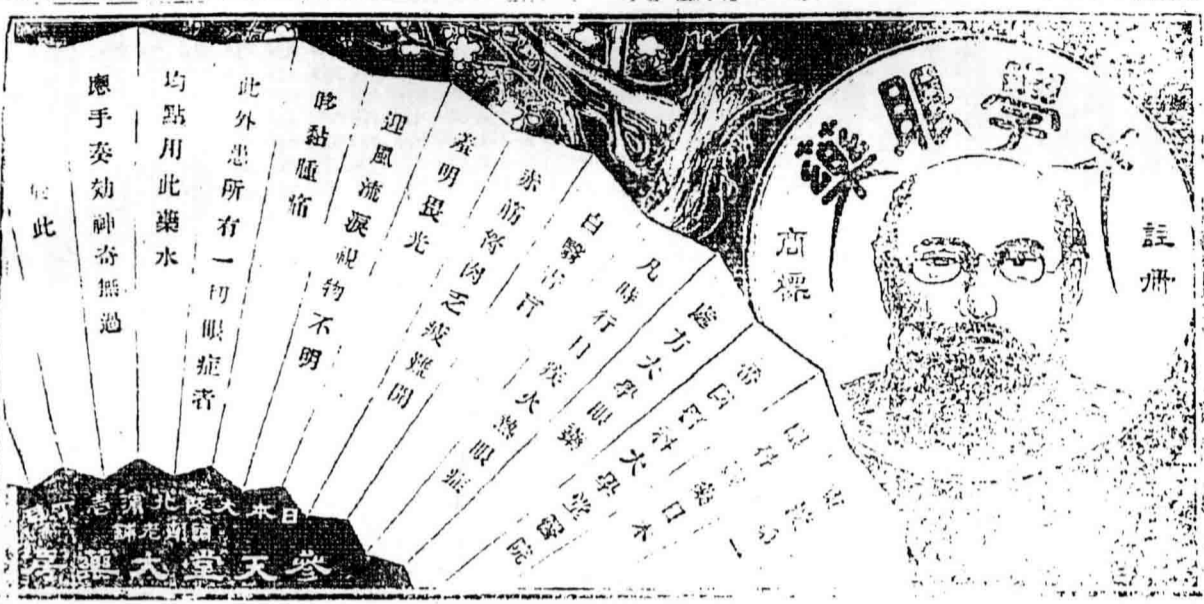 大學眼藥
註冊
商標
帝國醫科大學堂醫院
處方大學眼藥
凡時行目疾火熱眼症
白翳害盲
赤筋努肉乏疲難開
羞明畏光
迎風流淚視物不明
眵黏腫痛
此外患所有一切眼症者
均點用此藥水
應手奏効神奇無過
於此
日本大阪北濱壱丁目
參天堂大藥房